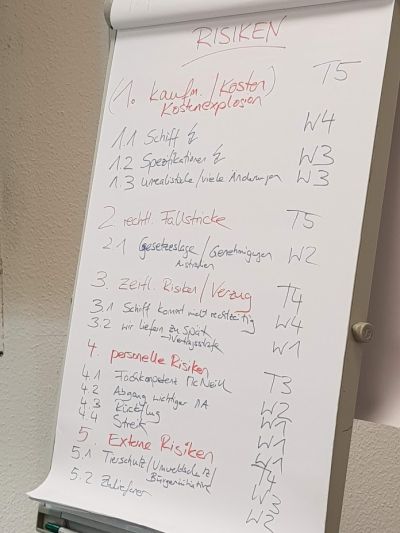 RISIKEN
(1. kaufm./Kosten) T5
Kostenexplosion
1.1 Schiff ↯ W4
1.2 Spezifikationen ↯ W3
1.3 unrealistische/viele Änderungen W3
2. rechtl. Fallstricke T5
2.1 Gesetzeslage/Genehmigungen W2
Australien
3. zeitl. Risiken/Verzug T4
3.1 Schiff kommt nicht rechtzeitig W4
3.2 wir liefern zu spät W1
→Vertragsstrafe
4. personelle Risiken T3
4.1 Fachkompetenz Mc Neill W2
4.2 Abgang wichtiger MA W1
4.3 Rückflug W1
4.4 Streik W1
5. Externe Risiken T4
5.1 Tierschutz/Umweltschutz/ W3
Bürgerinitiative
5.2 Zulieferer W2